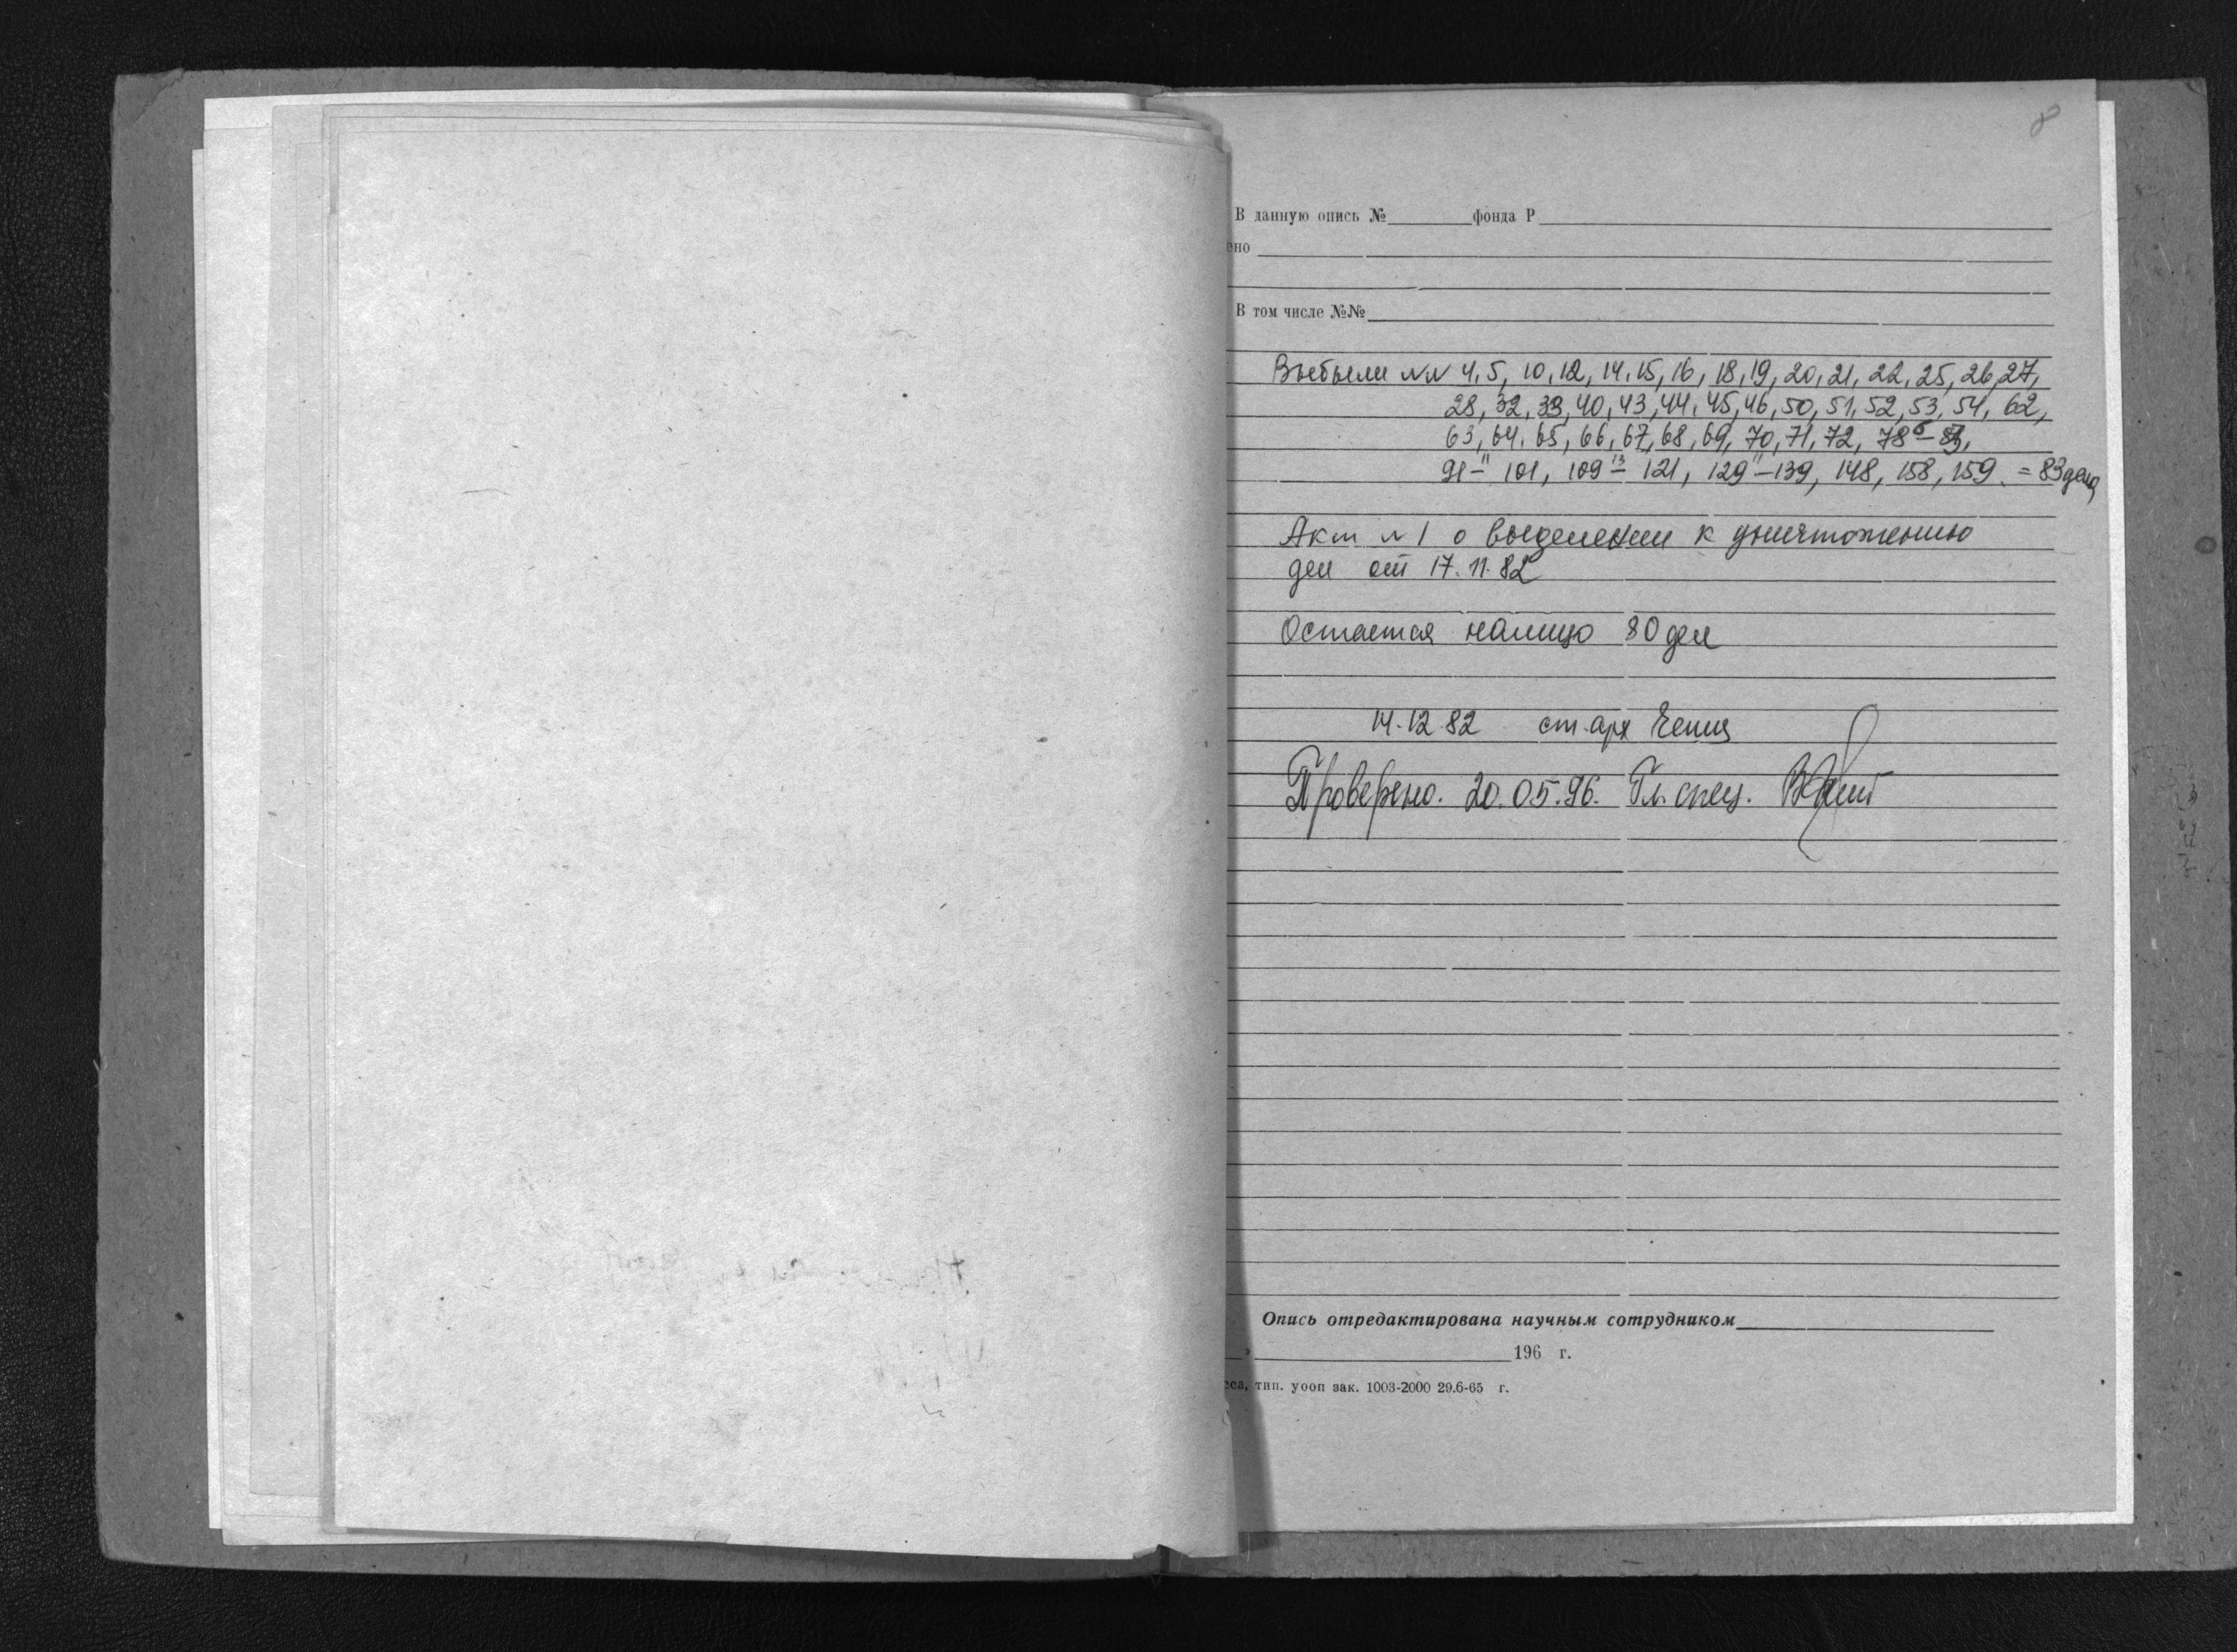 8
В данную опись №________фонда Р
ено
В том числе №№
Выбыли NN 4, 5, 10, 12, 14, 15, 16, 18, 19, 20, 21, 22, 25, 26, 27,
28, 32, 33, 40, 43, 44, 45, 46, 50, 51, 52, 53, 54, 62,
63, 64, 65, 66, 67, 68, 69, 70, 71, 72, 78 6 –
91 – 11 101, 109 13 – 121, 129 11 – 139, 148, 158, 159. = 83 дела
Акт N 1 о выделении к уничтожению
дел от 17.11.82
Остается налицо 80 дел
14.12.82 ст. арх
Проверено. 20.05.96. Гл. спец.
Опись отредактирована научным сотрудником
196 г.
сса, тип. уооп зак. 1003-2000 29.6-65 г.